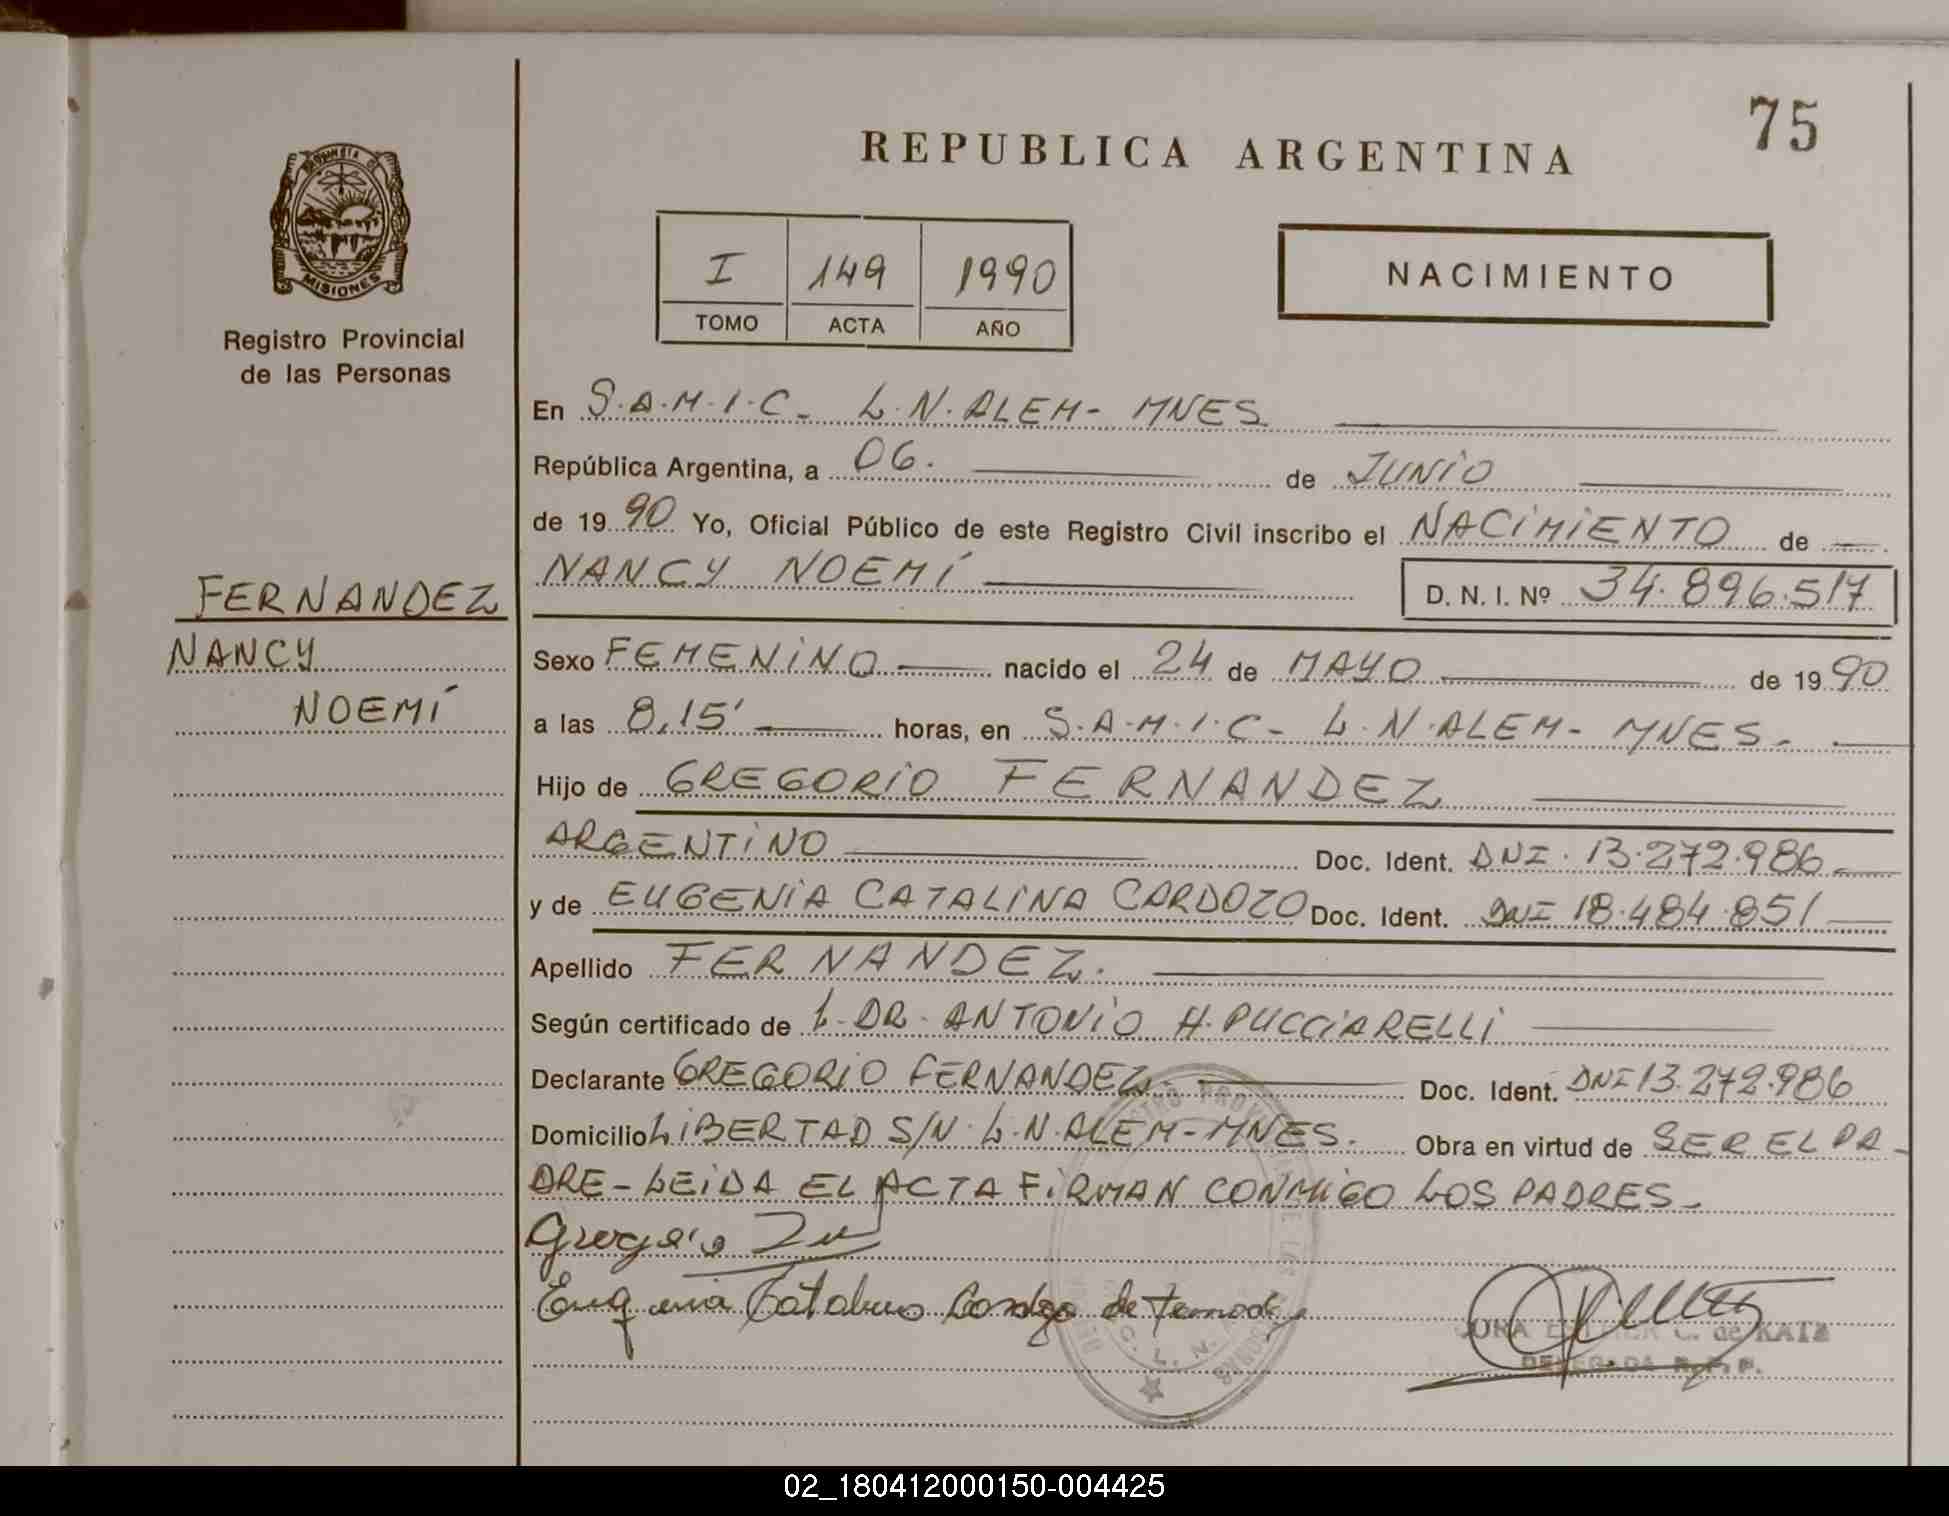 75
REPUBLICA ARGENTINA
PROVINCIA DE
MISIONES
Registro Provincial
de las Personas
I 149 1990
TOMO ACTA AÑO
NACIMIENTO
En S.A.M.I.C. L.N.ALEM- MNES
República Argentina, a 06. de JUNIO
de 1990 Yo, Oficial Público de este Registro Civil inscribo el NACIMIENTO de
NANCY NOEMÍ D. N. I. Nº 34.896.517
FERNANDEZ
NANCY
NOEMÍ
Sexo FEMENINO nacido el 24 de MAYO de 1990
a las 8,15' horas, en S.A.M.I.C- L.N.ALEM- MNES-
Hijo de GREGORIO FERNANDEZ
ARGENTINO Doc. Ident. DNI. 13.272.986
y de EUGENIA CATALINA CARDOZO Doc. Ident. DNI 18.484.851
Apellido FERNANDEZ.
Según certificado de L. DR. ANTONIO H. PUCCIARELLI
Declarante GREGORIO FERNANDEZ. Doc. Ident. DNI 13.272.986
Domicilio LIBERTAD S/N. L.N.ALEM-MNES. Obra en virtud de SER EL PA-
DRE-LEIDA EL ACTA FIRMAN CONMIGO LOS PADRES-
Gregorio
Eugenia Catalina de
C. de KATZ
DELEGADA R.P.P.
02_180412000150-004425